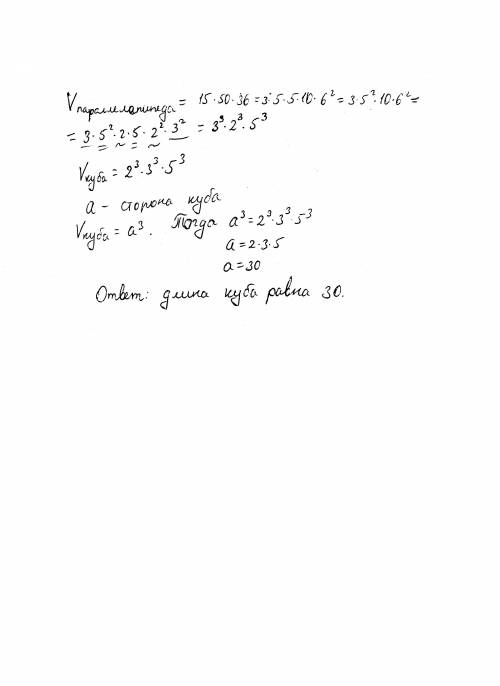 Vпараллелапипеда = 15·50·36 = 3·5·5·10·6² = 3·5²·10·6² =
= 3·5²·2·5·2²·3² = 3³·2³·5³
Vкуба = 2³·3³·5³
a - сторона куба
Vкуба = a³. Тогда a³ = 2³·3³·5³
a = 2·3·5
a = 30
Ответ: длина куба равна 30.